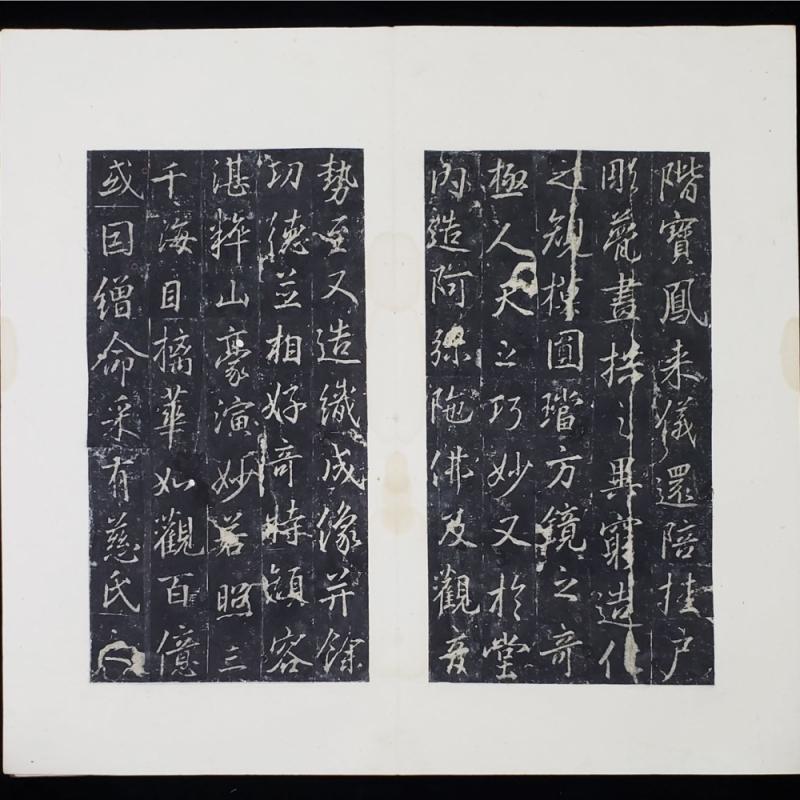 階寶鳳来儀還陪拄户
雕甍畫拱之異窮造化
之規模圓璫方鏡之奇
極人天之巧妙又於堂
内造阿弥陁佛及觀音
勢至又造織成像并餘
功德並相好奇特顔容
湛粹山豪演妙若照三
千海目摛華如觀百億
或因繒命采有慈氏